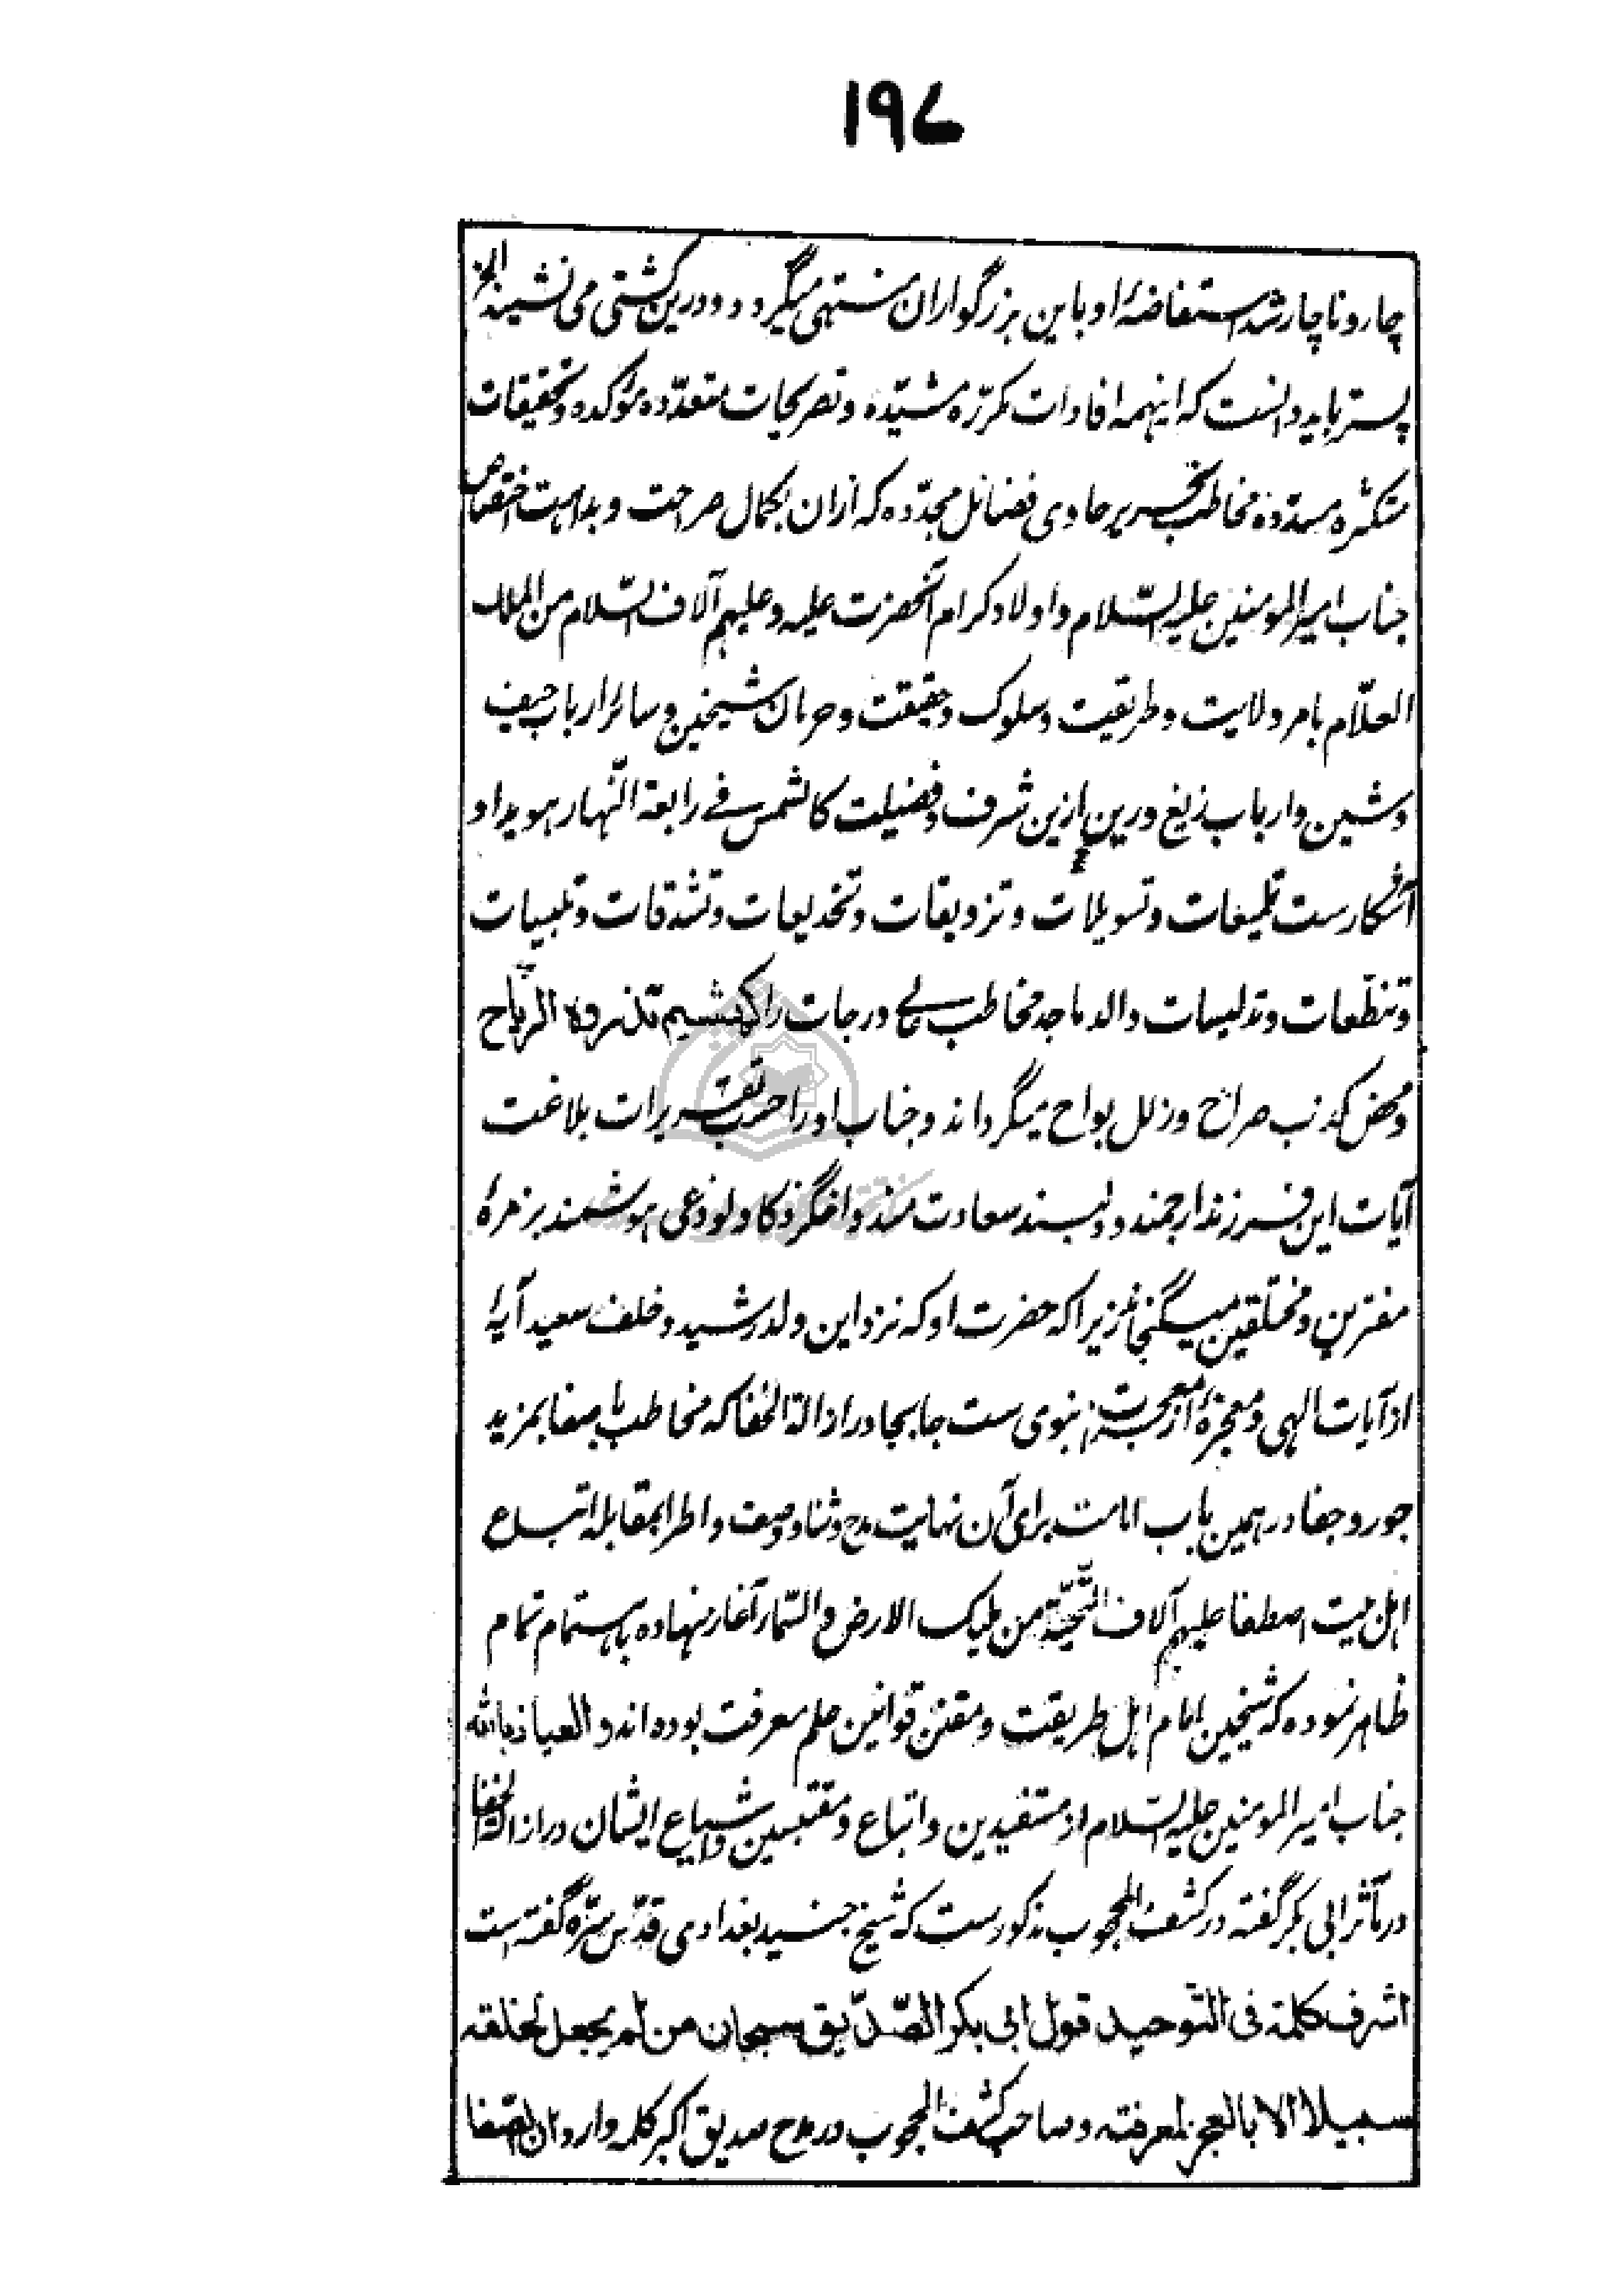 ۱۹۷
چار و ناچار رشد استفاضهٔ او باین بزرگواران منتهی میگردد و درین کشتی می نشیند الخ
پستر باید دانست که اینهمه افادات مکرّره مشیّده و تصریحات متعدّده مؤکده و تحقیقات
متکثره مسدّده مخاطب نحریر حاوی فضائل مجدّده که ازان بکمال صراحت و بداهت اختصاص
جناب امیرالمومنین علیه السّلام و اولاد کرام آنحضرت علیه و علیهم آلاف السّلام من الملک
العلّام بامر ولایت و طریقت و سلوک و حقیقت و حرمان شیخین و سائر ارباب حیف
و شین و ارباب زیغ و رین ازین شرف و فضیلت کالشمس فے رابعة النّهار هویدا و
آشکارست تلمیعات و تسویلات و تزویقات و تخدیعات و تشدقات و تلبیسات
و تنطّعات و تدلیسات والد ماجد مخاطب درجات را کهشیم تذروه الریاح
و محض کذب صراح و زلل بواح میگرداند و جناب او را حسب تقریرات بلاغت
آیات این فرزند ارجمند و دلبند سعادت مند و اخگر ذکا و لوذعی هوشمند بزمرهٔ
مفترین و مختلقین میگنجاند زیرا که حضرت او که نزد این ولد رشید و خلف سعید آیهٔ
از آیات الهی و معجزهٔ از معجزات نبوی ست جابجا در ازالة الخفا که مخاطب با صفا بمزید
جور و جفا در همین باب امامت برای آن نهایت مدح و ثنا و وصف و اطرا بمقابله اتباع
اهل بیت اصطفا علیهم آلاف التّحیّة من ملیک الارض و السّما آغاز نهاده باهتمام تمام
ظاهر نموده که شیخین امام اهل طریقت و مقنن قوانین علم معرفت بوده اند و العیاذ بالله
جناب امیرالمومنین علیه السّلام از مستفیدین و اتباع و مقتبسین و اشیاع ایشان در ازالة الخفا
در مآثر ابی بکر گفته در کشف المحجوب مذکورست که شیخ جنید بغدادی قدّس سرّه گفته است
اشرف کلمة فی التوحید قول ابی بکر الصّدّیق سبحان من لم یجعل لخلقه
سبیلا الا بالعجز لمعرفته و صاحب کشف المحجوب در مدح صدیق اکبر کلمه دارد ان الصفا